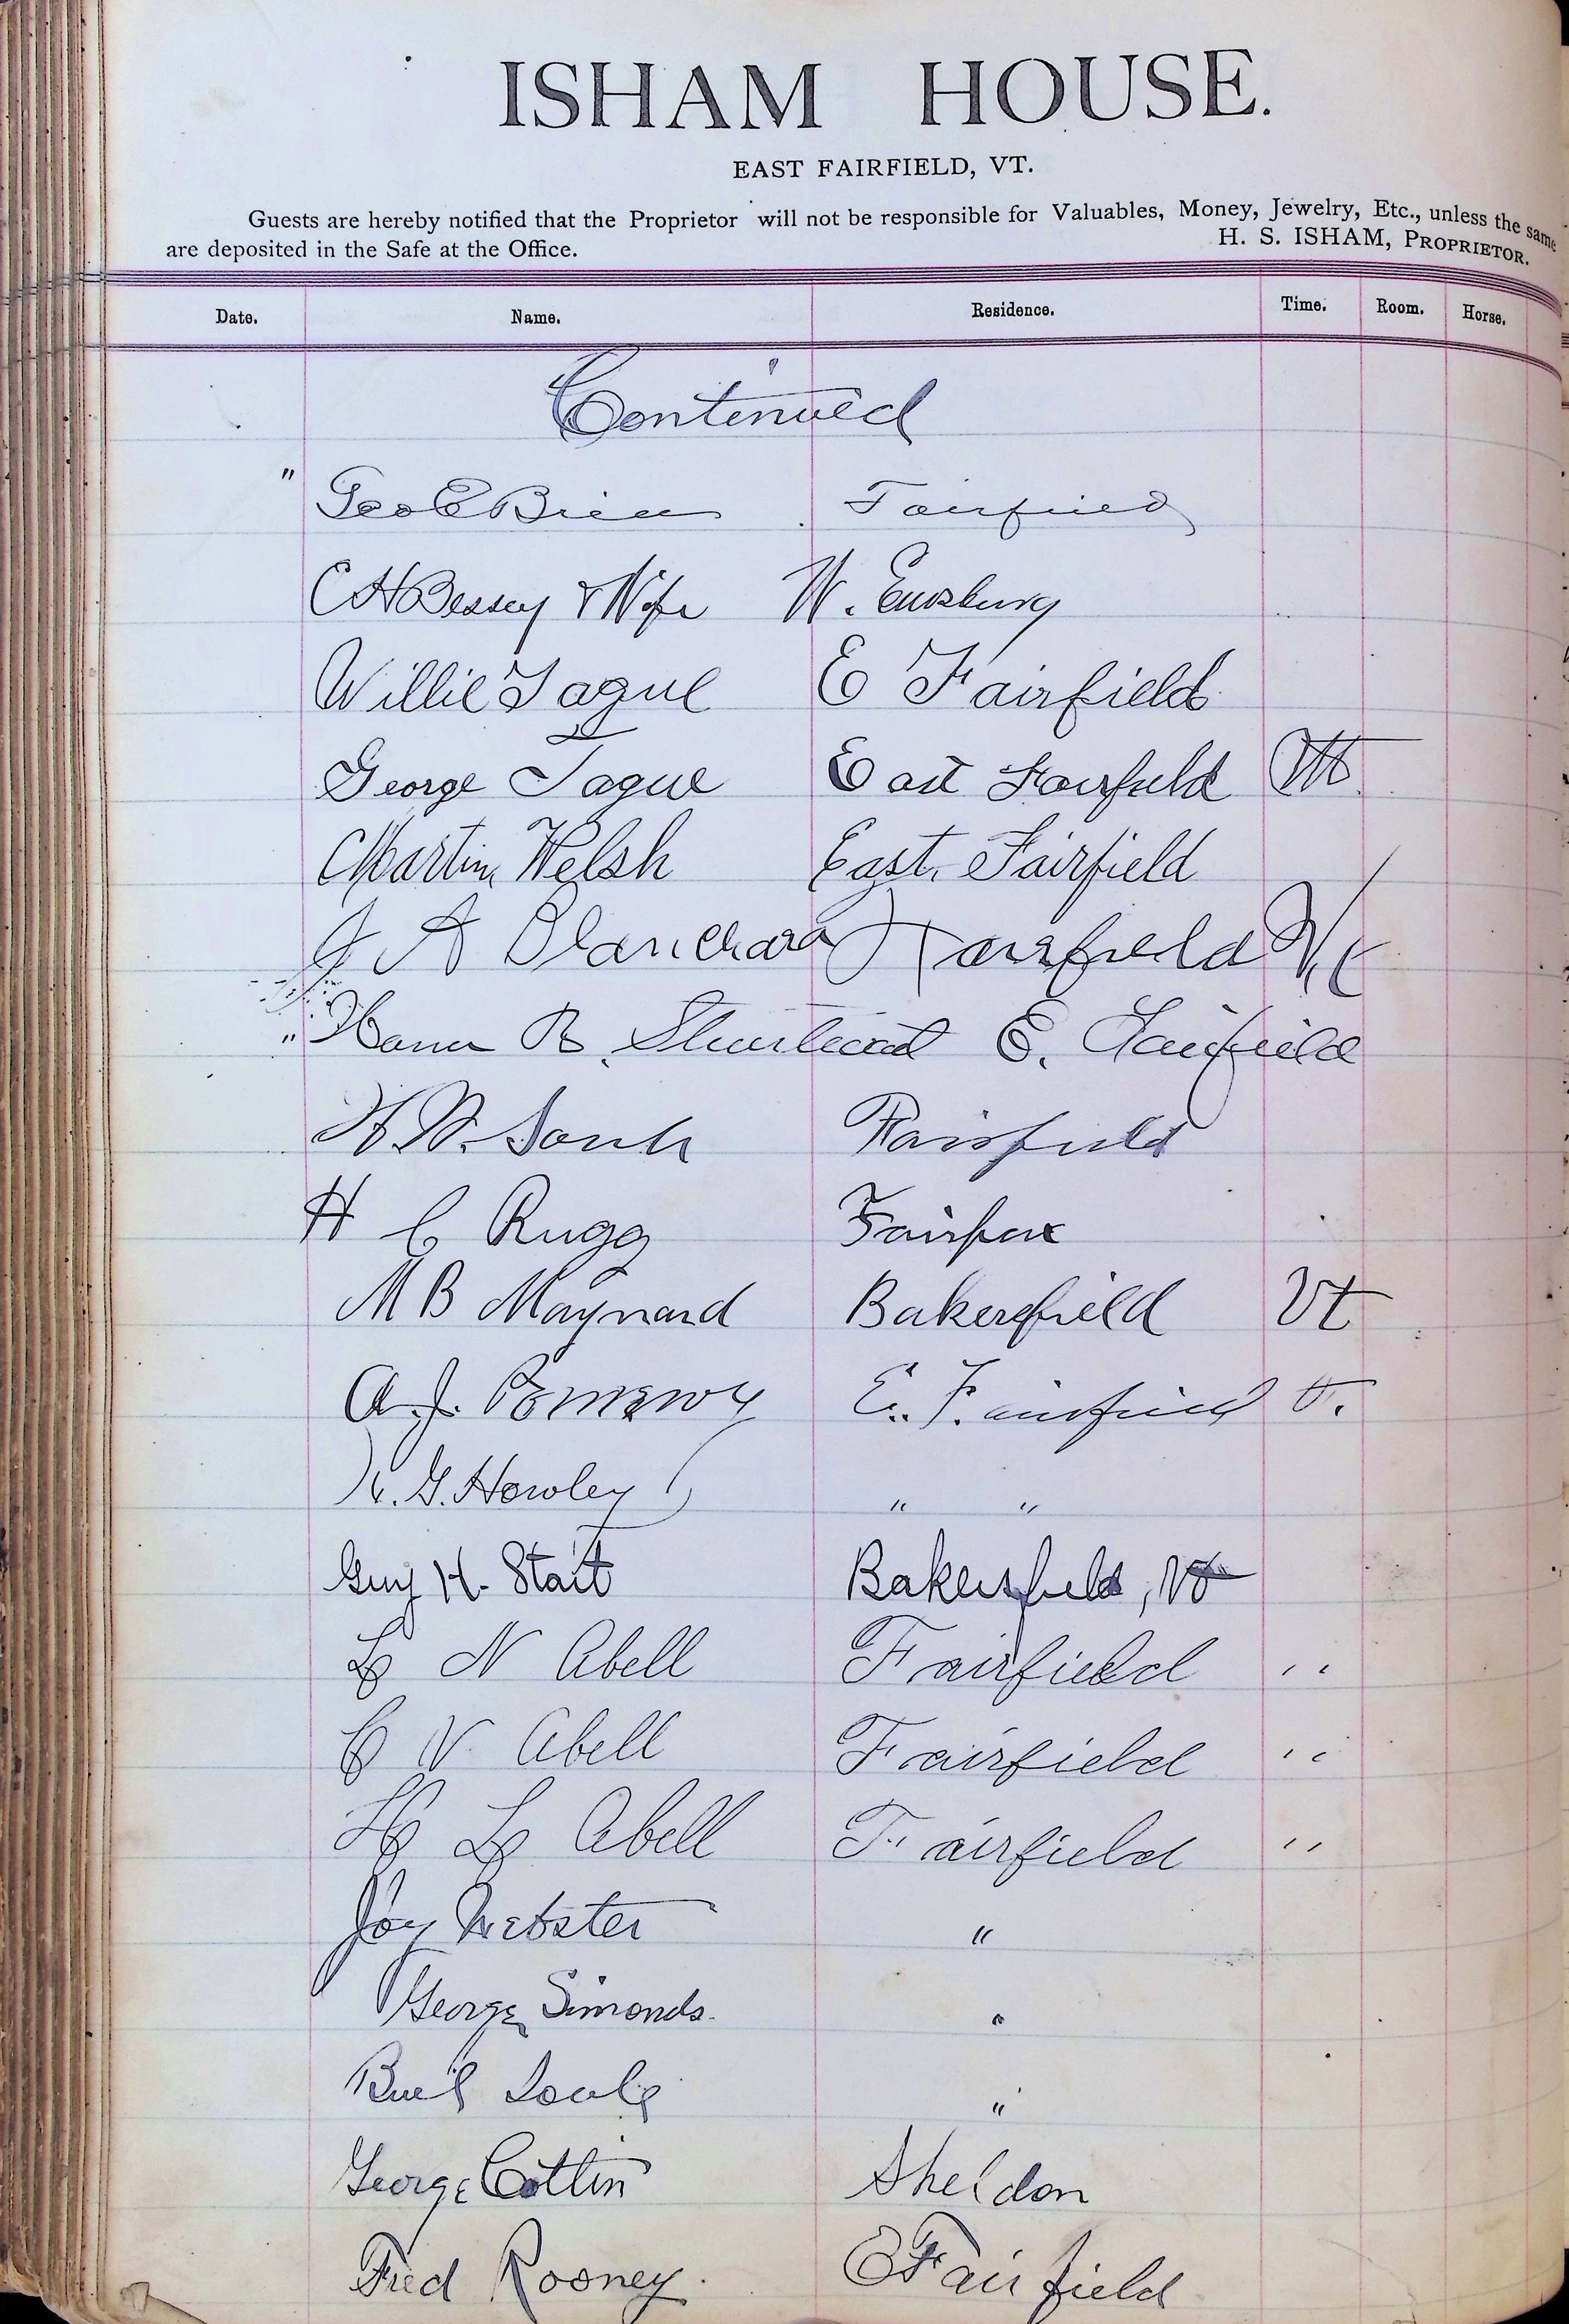 ISHAM HOUSE.
EAST FAIRFIELD, VT.
Guests are hereby notified that the Proprietor will not be responsible for Valuables, Money, Jewelry, Etc., unless the same
are deposited in the Safe at the Office. H. S. ISHAM, PROPRIETOR.
Date. Name. Residence. Time. Room. Horse.
Continued
" Geo E Brien Fairfield
C H Bessey & Wife W. Enosburg
Willie Tague E Fairfield
George Tague East Fairfield Vt
Martin Welsh East. Fairfield
J A Blanchard Fairfield Vt
" B. Sturtevant E. Fairfield
H. W. Soule Fairfield
H C Rugg Fairfax
M B Maynard Bakersfield Vt
A. J. Pomeroy E. Fairfield V.
G. Howley " "
Guy H. Start Bakersfield, Vt
L N Abell Fairfield "
C N Abell Fairfield "
H L Abell Fairfield "
Joy Webster "
George Simonds. "
Buel Soule "
George Cottin Sheldon
Fred Rooney. E Fairfield